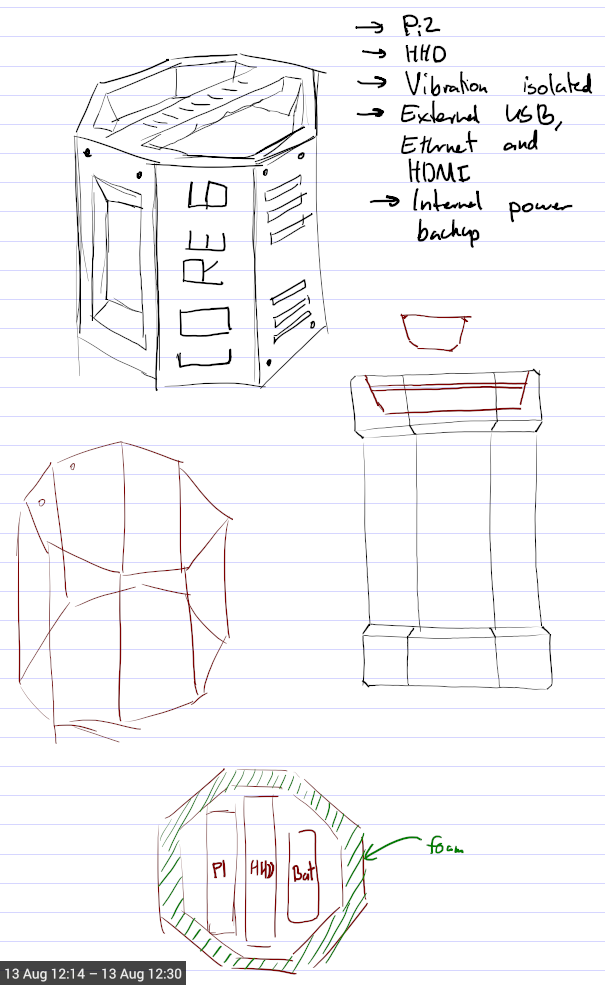 → Pi2
→ HHD
→ Vibration isolated
→ External USB,
Ethernet and
HDMI
→ Internal power
backup
CORED
foam
PI
HHD
Bat
13 Aug 12:14 – 13 Aug 12:30